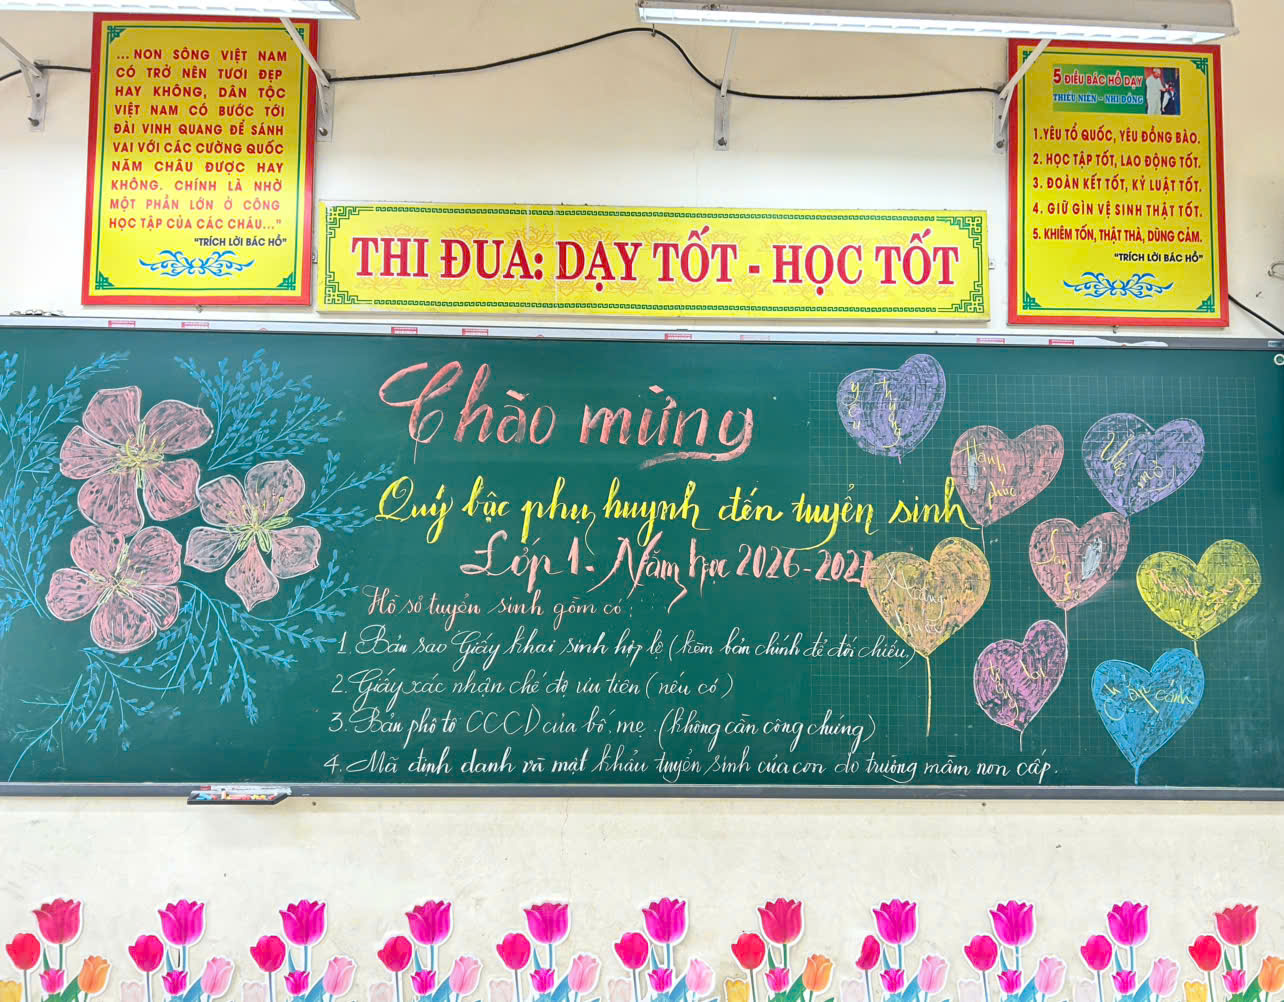 ...NON SÔNG VIỆT NAM
CÓ TRỞ NÊN TƯƠI ĐẸP
HAY KHÔNG, DÂN TỘC
VIỆT NAM CÓ BƯỚC TỚI
ĐÀI VINH QUANG ĐỂ SÁNH
VAI VỚI CÁC CƯỜNG QUỐC
NĂM CHÂU ĐƯỢC HAY
KHÔNG. CHÍNH LÀ NHỜ
MỘT PHẦN LỚN Ở CÔNG
HỌC TẬP CỦA CÁC CHÁU..."
"TRÍCH LỜI BÁC HỒ"
THI ĐUA: DẠY TỐT - HỌC TỐT
5 ĐIỀU BÁC HỒ DẠY
THIẾU NIÊN - NHI ĐỒNG
1.YÊU TỔ QUỐC, YÊU ĐỒNG BÀO.
2. HỌC TẬP TỐT, LAO ĐỘNG TỐT.
3. ĐOÀN KẾT TỐT, KỶ LUẬT TỐT.
4. GIỮ GÌN VỆ SINH THẬT TỐT.
5. KHIÊM TỐN, THẬT THÀ, DŨNG CẢM.
"TRÍCH LỜI BÁC HỒ"
Chào mừng
Quý bậc phụ huynh đến tuyển sinh
Lớp 1. Năm học 2026-2027
Hồ sơ tuyển sinh gồm có:
1. Bản sao Giấy khai sinh hợp lệ (kèm bản chính để đối chiếu)
2. Giấy xác nhận chế độ ưu tiên (nếu có)
3. Bản phô tô CCCD của bố, mẹ. (không cần công chứng)
4. Mã định danh và mật khẩu tuyển sinh của con do trường mầm non cấp.
yêu thương
Hạnh phúc